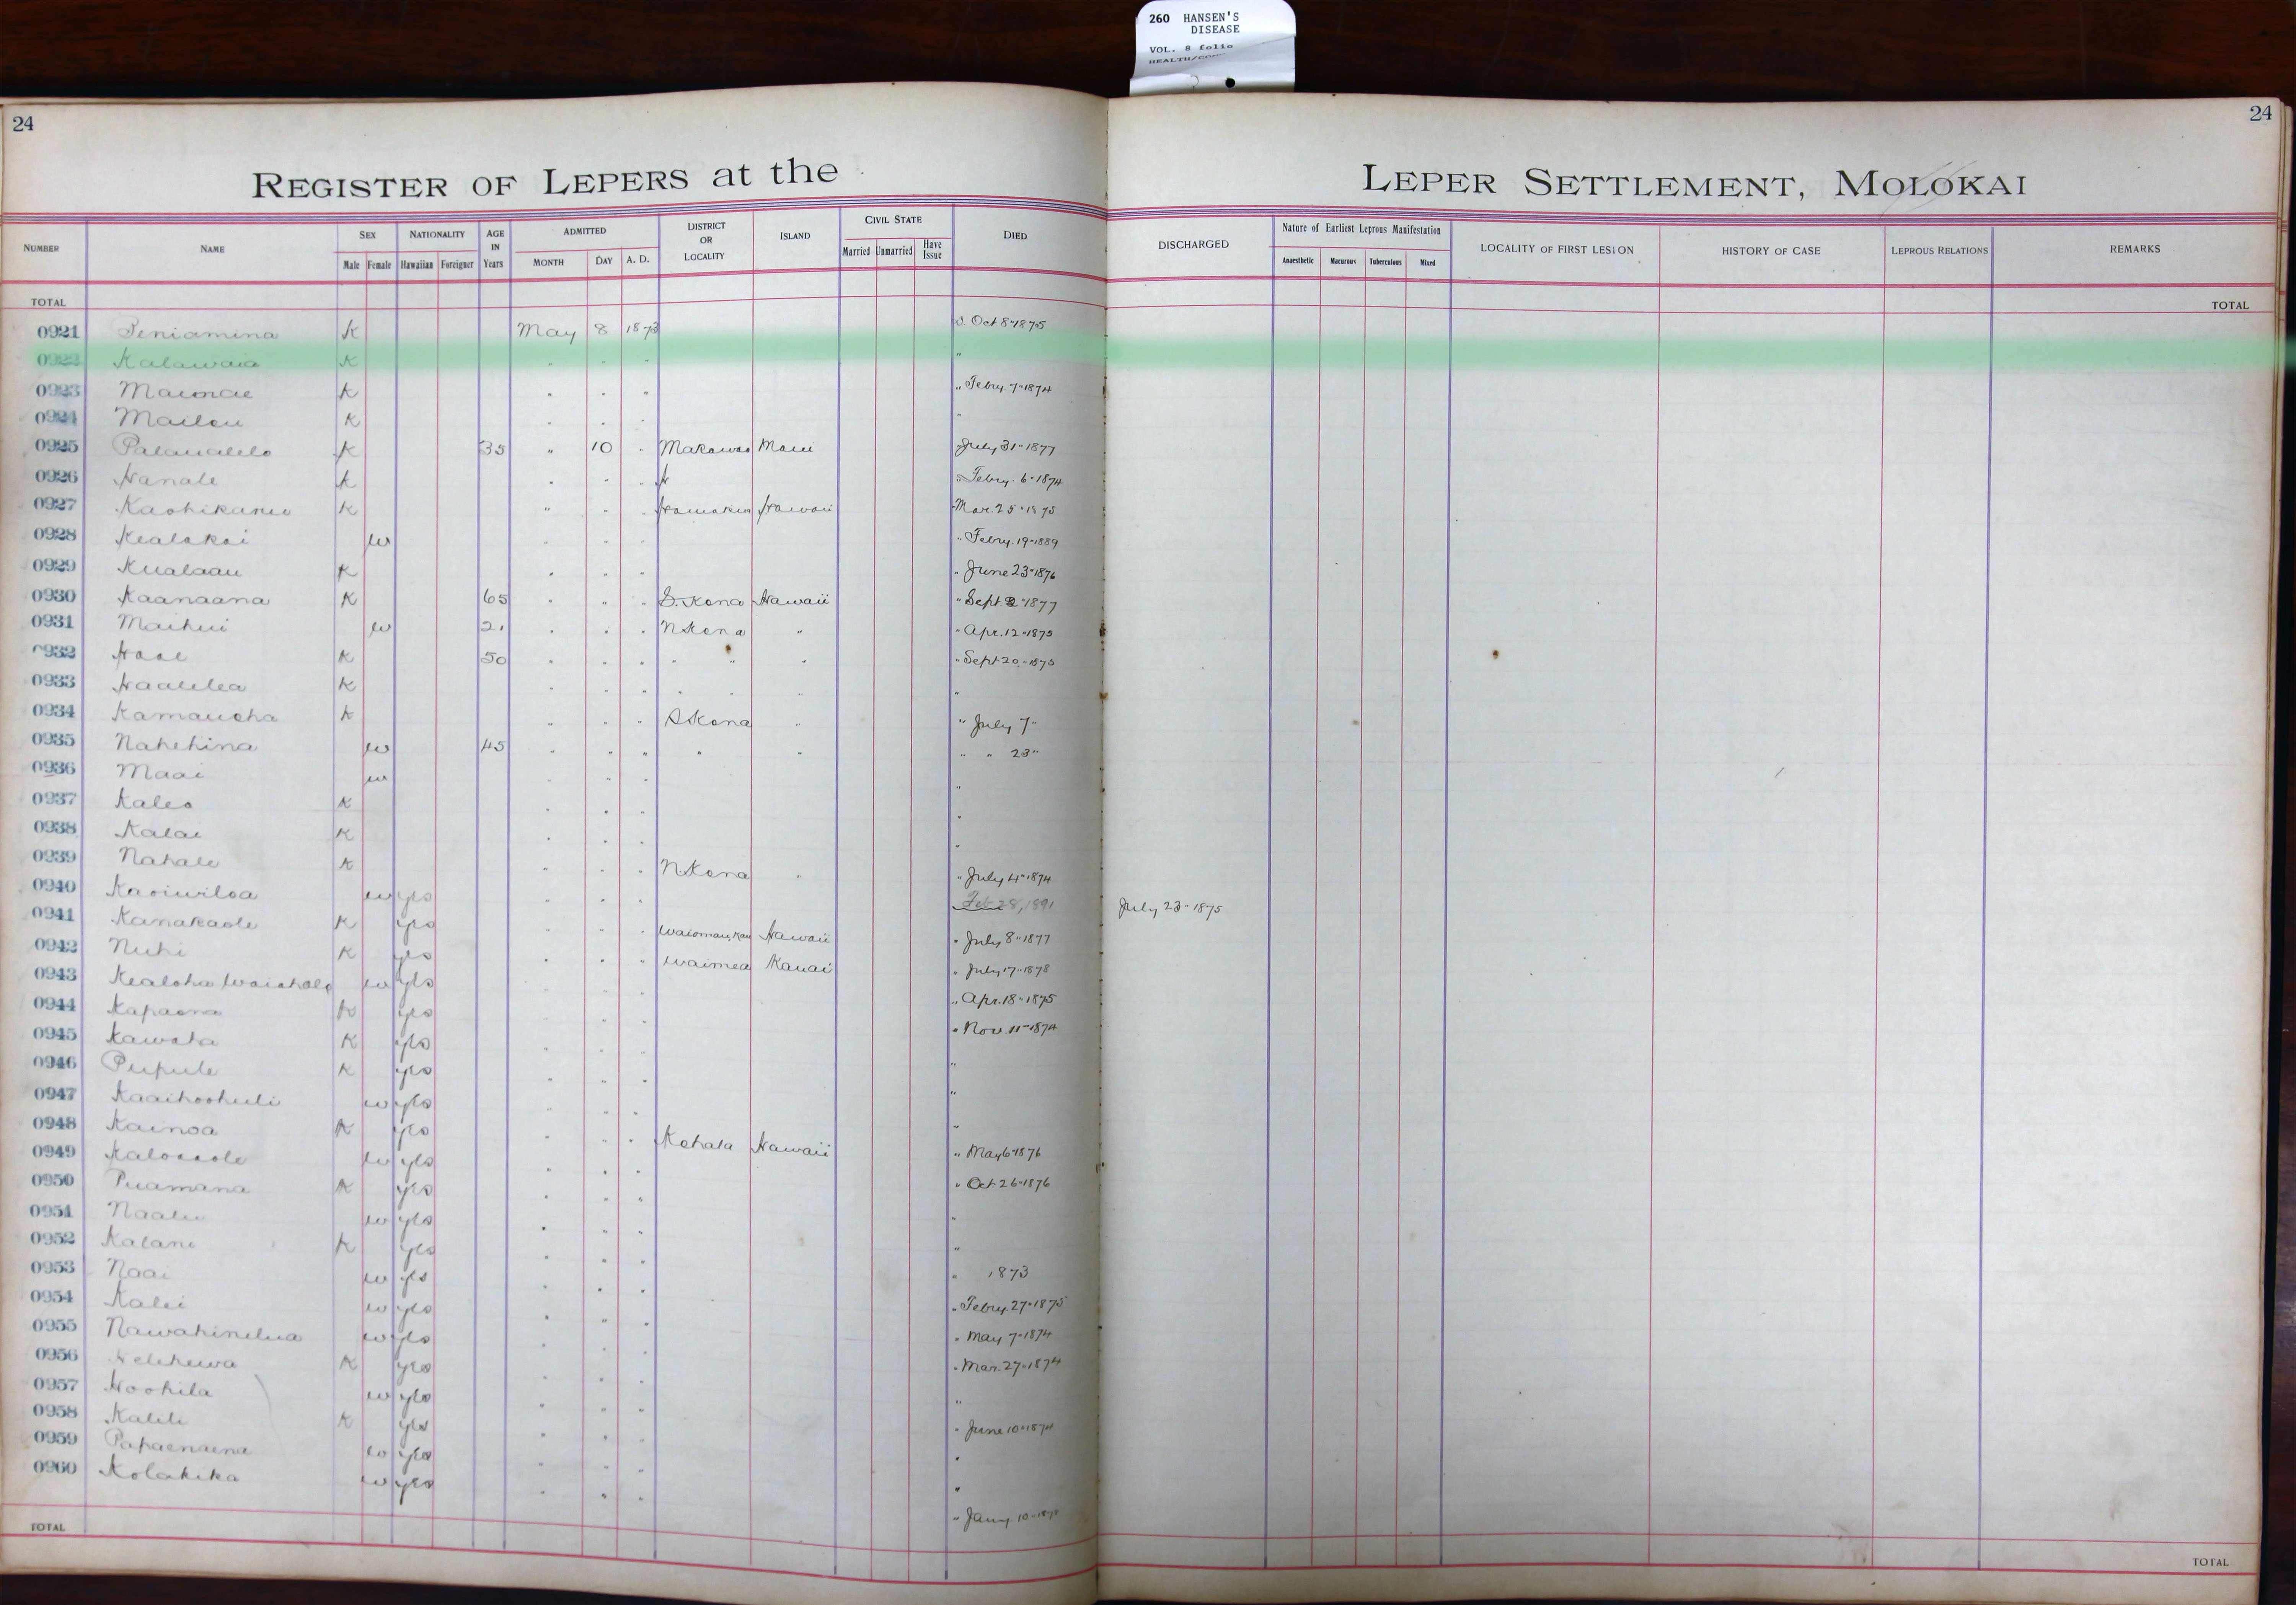 260 HANSEN'S
DISEASE
VOL. 8 folio
24
24
REGISTER OF LEPERS at the LEPER SETTLEMENT, MOLOKAI
NUMBER NAME SEX NATIONALITY AGE IN Years ADMITTED DISTRICT OR LOCALITY ISLAND CIVIL STATE DIED DISCHARGED Nature of Earliest Leprous Manifestation LOCALITY OF FIRST LESION HISTORY OF CASE LEPROUS RELATIONS REMARKS
Male Female Hawaiian Foreigner MONTH DAY A. D. Married Unmarried Have Issue Anaesthetic Macurous Tuberculous Mixed
TOTAL TOTAL
0921 Peniamina K May 8 1873 d. Oct 8" 1875
0922 Kalawaia K " " " "
0923 K " " " " Febry. 7" 1874
0924 Mailou K " " " "
0925 Palaualelo K 35 " 10 " Makawao Maui " July 31" 1877
0926 Hanale K " " " " Febry. 6" 1874
0927 Kaohikanui K " " " Hamakua Hawaii " Mar. 25" 1875
0928 Kealakai w " " " " Febry. 19" 1889
0929 Kualaau K " " " " June 23" 1876
0930 Kaanaana K 65 " " " S. Kona Hawaii " Sept 2" 1877
0931 Maihui w 21 " " " N Kona " " Apr. 12" 1875
0932 K 50 " " " " " " " Sept 20" 1875
0933 Haalelea K " " " " " " "
0934 Kamauoha K " " " S Kona " " July 7"
0935 Nahehina w 45 " " " " " " " 23"
0936 Maai w " " " "
0937 Kaleo K " " " "
0938 Kalai K " " " "
0939 Nahale K " " " N Kona " " July 4" 1874
0940 Kaoiwiloa w yes " " " Feb 28, 1891 July 23" 1875
0941 Kanakaole K yes " " " Hawaii " July 8" 1877
0942 Nuhi K yes " " " Waimea Kauai " July 17" 1878
0943 Kealoha w yes " " " " Apr. 18" 1875
0944 Kapaona K yes " " " " Nov. 11" 1874
0945 Kawaha K yes " " " "
0946 Pupule K yes " " " "
0947 Kaaihoohuli w yes " " " "
0948 Kainoa K yes " " " Kohala Hawaii " May 6" 1876
0949 w yes " " " " Oct 26" 1876
0950 Puamana K yes " " " "
0951 Naalu w yes " " " "
0952 Kalani K yes " " " " 1873
0953 Naai w yes " " " " Febry. 27" 1875
0954 Kalei w yes " " " " May 7" 1874
0955 Nawahinelua w yes " " " " Mar. 27" 1874
0956 Kelehewa K yes " " " "
0957 Hoohila w yes " " " " June 10" 1874
0958 Kalili K yes " " " "
0959 Papaenaena w yes " " " "
0960 Kolakika w yes " " " " Jany. 10"
TOTAL TOTAL